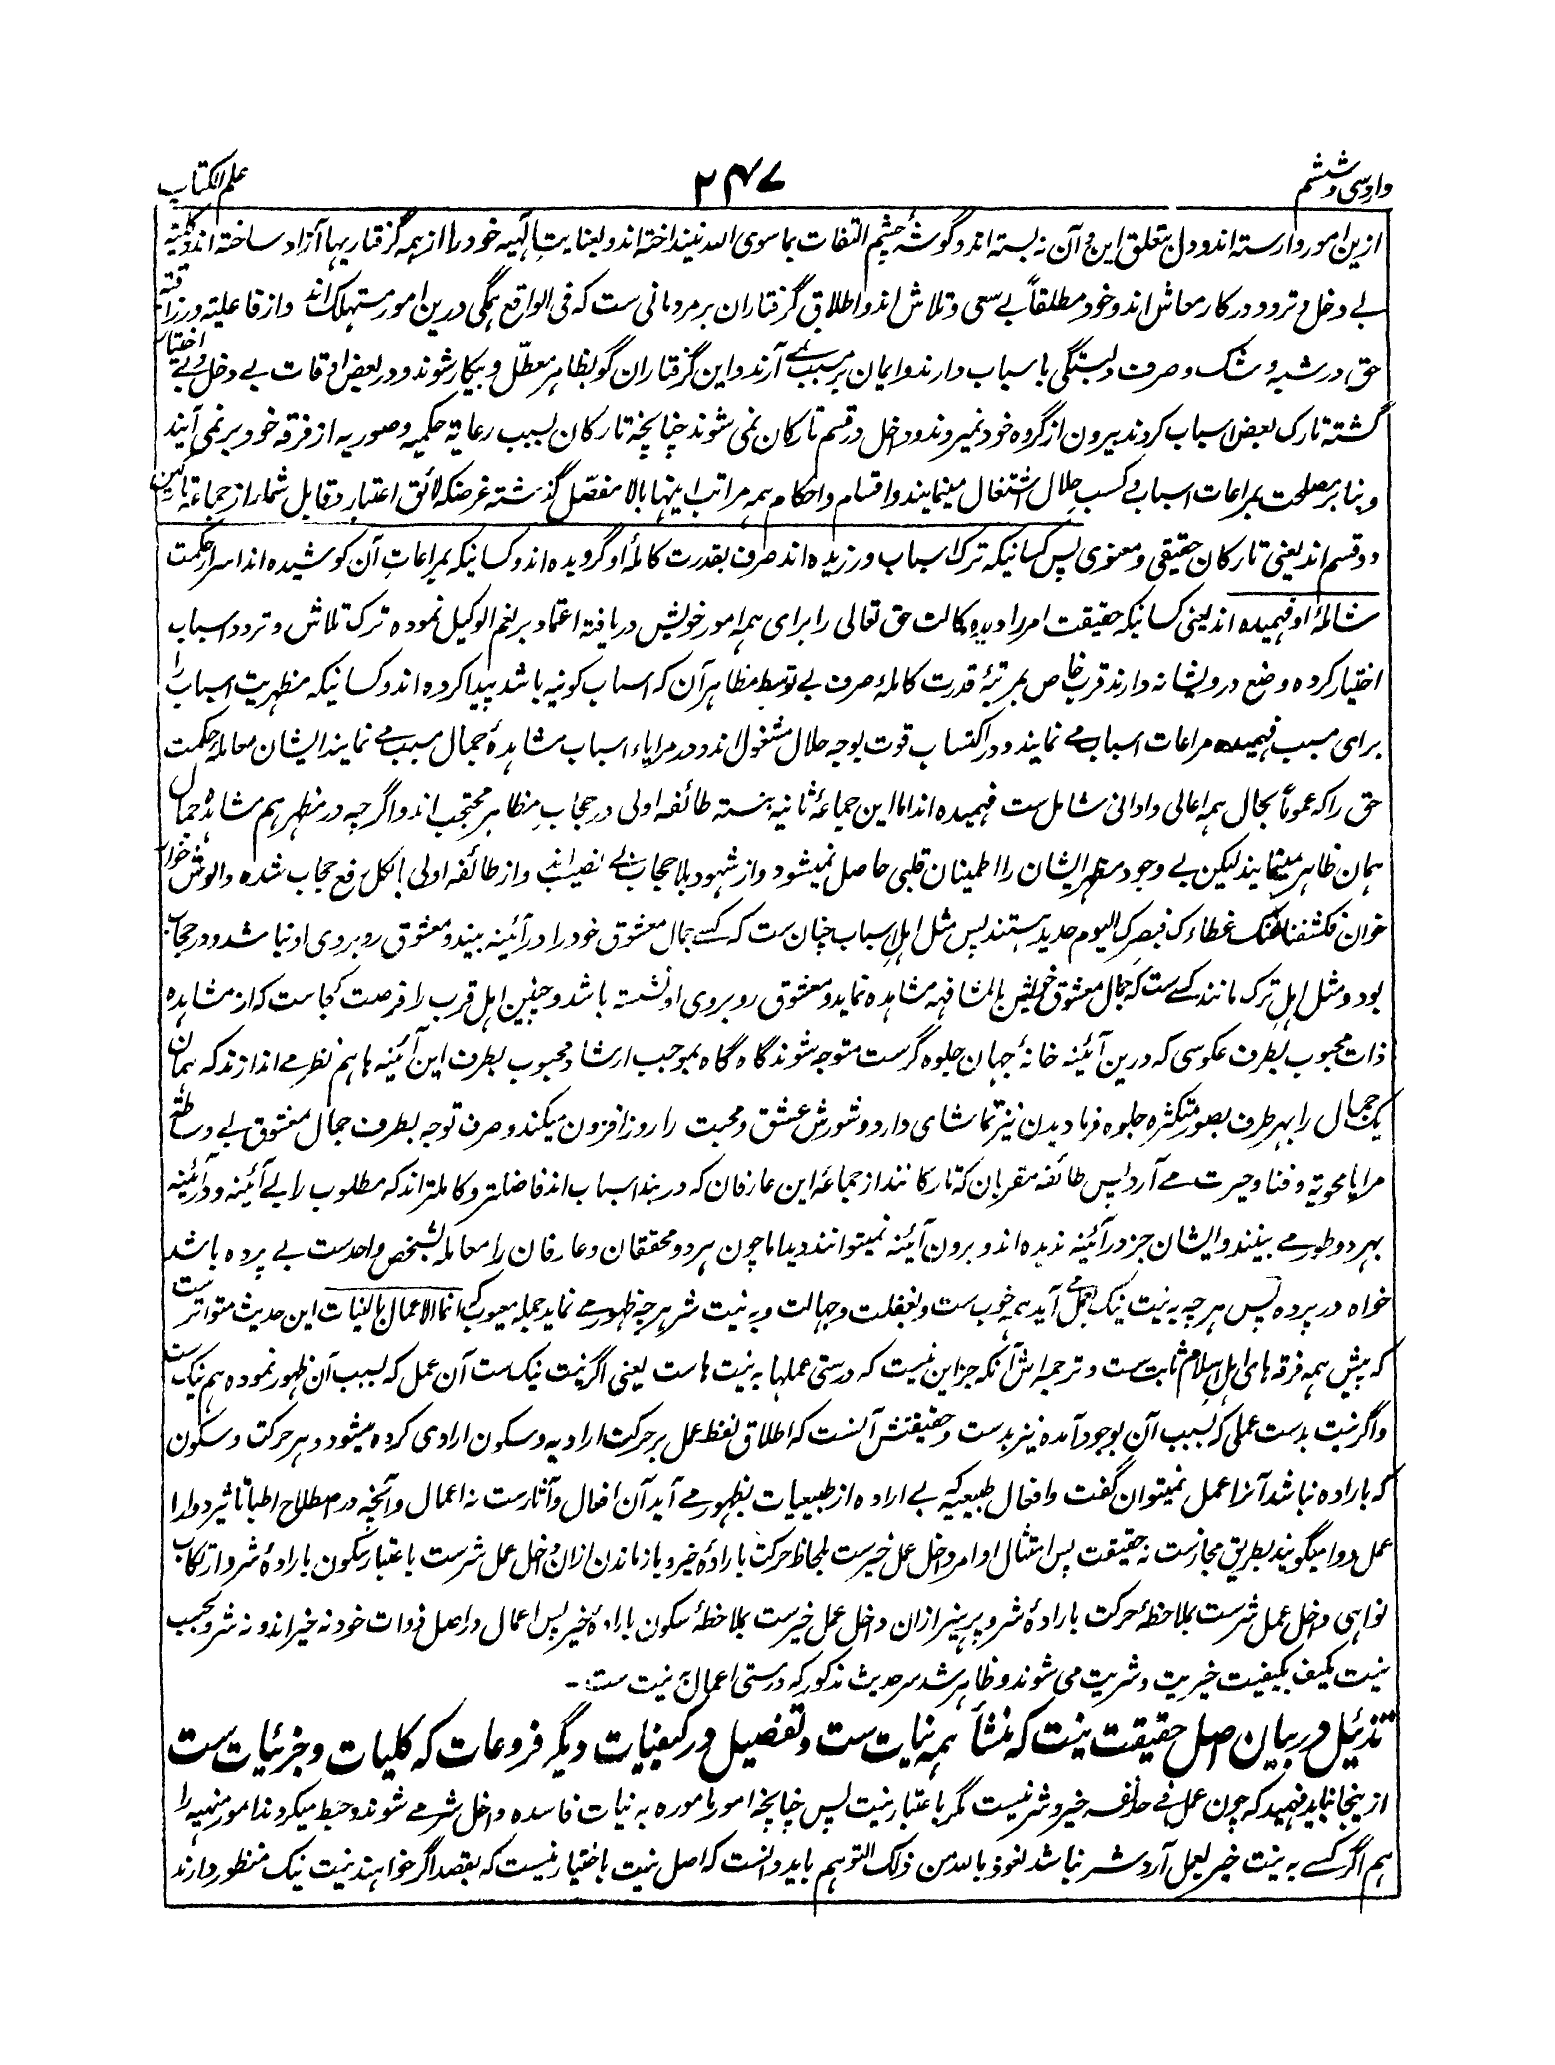 وارد سی و ششم
۲۴۷
علم الکتاب
ازین امور وارسته اند و دل بتعلق این و آن نه بسته اند و گوشهٔ چشم التفات بما سوی الله نینداخته اند و بعنایت الٰهیه خود را از همه گرفتاریها آزاد ساخته اند و کلیته
بے دخل و تردد در کار معاش اند و خود مطلقاً بے سعی و تلاش اند و اطلاق گرفتاران بر مردمانی ست که فی الواقع همگی درین امور مستهلک اند و از فاعلیته و رزاقیته
حق در شبه و شک و صرف دلبستگی با سباب دارند و ایمان بر مسبب نمے آرند و این گرفتاران گو بظاهر معطّل و بیکار شوند و در بعض اوقات بے دخل و بے اختیار
گشته تارک بعض اسباب کردند بیرون از گروه خود نمیروند و داخل در قسم تارکان نمی شوند چنانچه تارکان بسبب رعایة حکمیه و صوریه از فرقه خود بر نمی آیند
و بنا بر مصلحت بمراعات اسباب و کسب حلال اشتغال مینمایند و اقسام و احکام همه مراتب اینها بالا مفصّل گذشته غرضکه لائق اعتبار و قابل شمار از جماعة کاملین
دو قسم اند یعنی تارکان حقیقی و معنوی پس کسانیکه ترک اسباب ورزیده اند صرف بقدرت کاملهٔ او گرویده اند و کسانیکه بمراعات آن کوشیده اند اسرار حکمت
شاملهٔ او فهمیده اند یعنی کسانیکه حقیقت امر را دیده وکالت حق تعالی را برای همه امور خویش دریافته اعتماد بر نعم الوکیل نموده ترک تلاش و تردد اسباب
اختیار کرده وضع درویشانه دارند قرب خاص بمرتبهٔ قدرت کاملهٔ صرف بے توسط مظاهر آن که اسباب کونیه باشد پیدا کرده اند و کسانیکه مظهریت اسباب را
برای مسبب فهمیده مراعات اسباب مے نمایند و در اکتساب قوت بوجه حلال مشغول اند و در مرایاء اسباب مشاهدهٔ جمال مسبب مے نمایند ایشان معاملهٔ حکمت
حق را که عموماً بحال همه اعالی و ادانی شامل ست فهمیده اند اما این جماعهٔ ثانیه بنسبته طائفه اولی در حجاب مظاهر محتجب اند و اگرچه در مظهر هم مشاهدهٔ جمال
همان ظاهر مینمایند لیکن بے وجود مظهر ایشان را اطمینان قلبی حاصل نمیشود و از شهود بلا حجاب بے نصیب اند و از طائفه اولی بالکل رفع حجاب شده و الوش خوار
خوان فکشفنا عنک غطاءک فبصرک الیوم حدید هستند پس مثل اهل اسباب چنان ست که کسے جمال معشوق خود را در آئینه بیند و معشوق روبروی او نباشد و در حجاب
بود و مثل اهل ترک مانند کسے ست که جمال معشوق خویش بالمشافهه مشاهده نماید و معشوق روبروی او نشسته باشد و چنین اهل قرب را فرصت کجاست که از مشاهده
ذات محبوب بطرف عکوسی که درین آئینه خانهٔ جهان جلوه گرست متوجه شوند گاه گاه بموجب ارشاد محبوب بطرف این آئینه ها هم نظر مے اندازند که همان
یک جمال را بهر طرف بصور متکثره جلوه فرما دیدن نیز تماشای دارد و شورش عشق و محبت را روز افزون میکند و صرف توجه بطرف جمال معشوق بے وساطة
مرایا محویة و فنا و حیرت مے آرد پس طائفه مقربان که تارکانند از جماعهٔ این عارفان که در بند اسباب اند فاضلتر و کاملتر اند که مطلوب را بے آئینه و در آئینه
بهر دو طور مے بینند و ایشان جز در آئینه ندیده اند و برون آئینه نمیتوانند دید اما چون هر دو محققان و عارفان را معامله بشخص واحدست بے پرده باشد
خواه در پرده پس هر چه به نیت نیک بعمل مے آید همه خوب ست و بغفلت و جهالت و به نیت شر هر چه ظهور مے نماید جمله معیوب که انما الاعمال بالنیات این حدیث متواترست
که پیش همه فرقه های اهل اسلام ثابت ست و ترجمه اش آنکه جز این نیست که درستی عملها به نیت هاست یعنی اگر نیت نیک ست آن عمل که بسبب آن ظهور نموده هم نیک ست
و اگر نیت بدست عملی که بسبب آن بوجود آمده نیز بدست و حقیقتش آنست که اطلاق لفظ عمل بر حرکت ارادیه و سکون ارادی کرده میشود و هر حرکت و سکون
که باراده نباشد آنرا عمل نمیتوان گفت و افعال طبیعیه که بے اراده از طبیعیات بظهور مے آید آن افعال و آثارست نه اعمال و آنچه در مصطلاح اطبا تاثیر دوا را
عمل دوا میگویند بطریق مجازست نه حقیقت پس امتثال اوامر داخل عمل خیرست بلحاظ حرکت بارادهٔ خیر و باز ماندن ازان داخل عمل شرست باعتبار سکون بارادهٔ شر و ارتکاب
نواهی داخل عمل شرست بملاحظهٔ حرکت بارادهٔ شر و پرهیز ازان داخل عمل خیرست بملاحظهٔ سکون بارادهٔ خیر پس اعمال در اصل ذوات خود نه خیر اند و نه شر و بحسب
نیت بکیف بکیفیت خیریت و شریت می شوند و ظاهر شد سر حدیث مذکور که درستی اعمال به نیت ست -
تذئیل در بیان اصل حقیقت نیت که منشأ همه نیات ست و تفصیل در کیفیات دیگر فروعات که کلیات و جزئیات ست
ازینجا نباید فهمید که چون عمل فے حد نفسه خیر و شر نیست مگر باعتبار نیت پس چنانچه امور ماموره به نیات فاسده داخل شر مے شوند و حبط میگردند امور منهیه را
هم اگر کسے به نیت خیر بعمل آرد شر نباشد نعوذ بالله من ذلک التوهم باید دانست که اصل نیت باختیار نیست که بقصد اگر خواهند نیت نیک منظور دارند